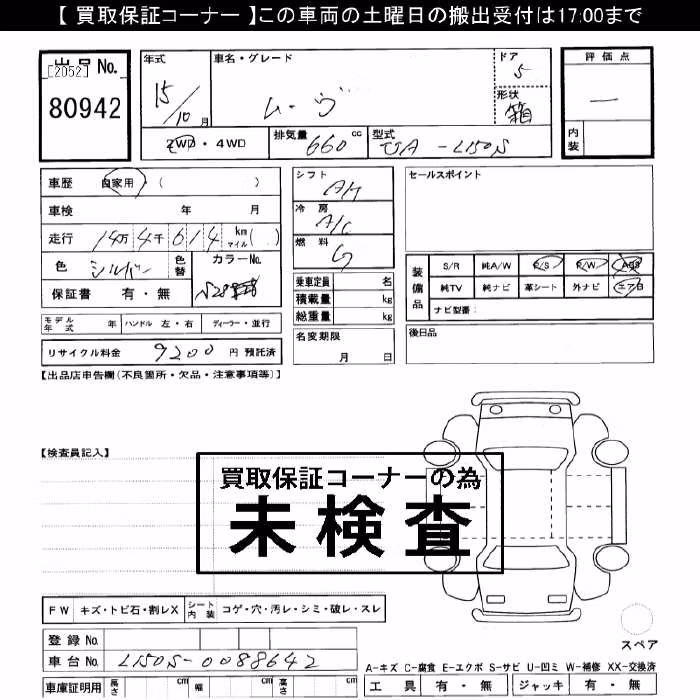 【 買取保証コーナー 】この車両の土曜日の搬出受付は17:00まで
出品 No.
[2052]
80942
年式
15/10 月
車名・グレード
ムーヴ
ドア
5
形状
箱
評価点
—
内装
2WD・4WD
排気量 660 cc
型式 UA-L150S
車歴 自家用・( )
車検 年 月
走行 14万 4千 6 1 4 km マイル( )
色 シルバー 色替
カラーNo.
S28
保証書 有・無
シフト
AT
冷房
A/C
燃料
G
乗車定員 名
積載量 kg
総重量 kg
セールスポイント
装備品
S/R 純A/W P/S P/W ABS
純TV 純ナビ 革シート 外ナビ エアB
ナビ型番:
モデル年式 年 ハンドル 左・右 ディーラー・並行
リサイクル料金 9200 円 預託済
名変期限
月 日
後日品
【出品店申告欄(不良箇所・欠品・注意事項等)】
【検査員記入】
買取保証コーナーの為
未検査
FW キズ・トビ石・割レX シート内装 コゲ・穴・汚レ・シミ・破レ・スレ
登録 No.
車台 No. L150S-0088642
スペア
A-キズ C-腐食 E-エクボ S-サビ U-凹ミ W-補修 XX-交換済
車庫証明用 長さ cm 幅 cm 高さ cm
工具 有・無 ジャッキ 有・無